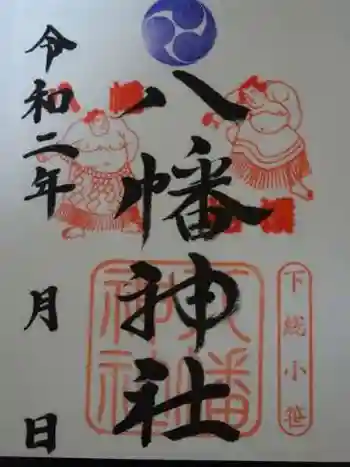 八幡神社
令和二年 月 日
下総小笹
八幡神社